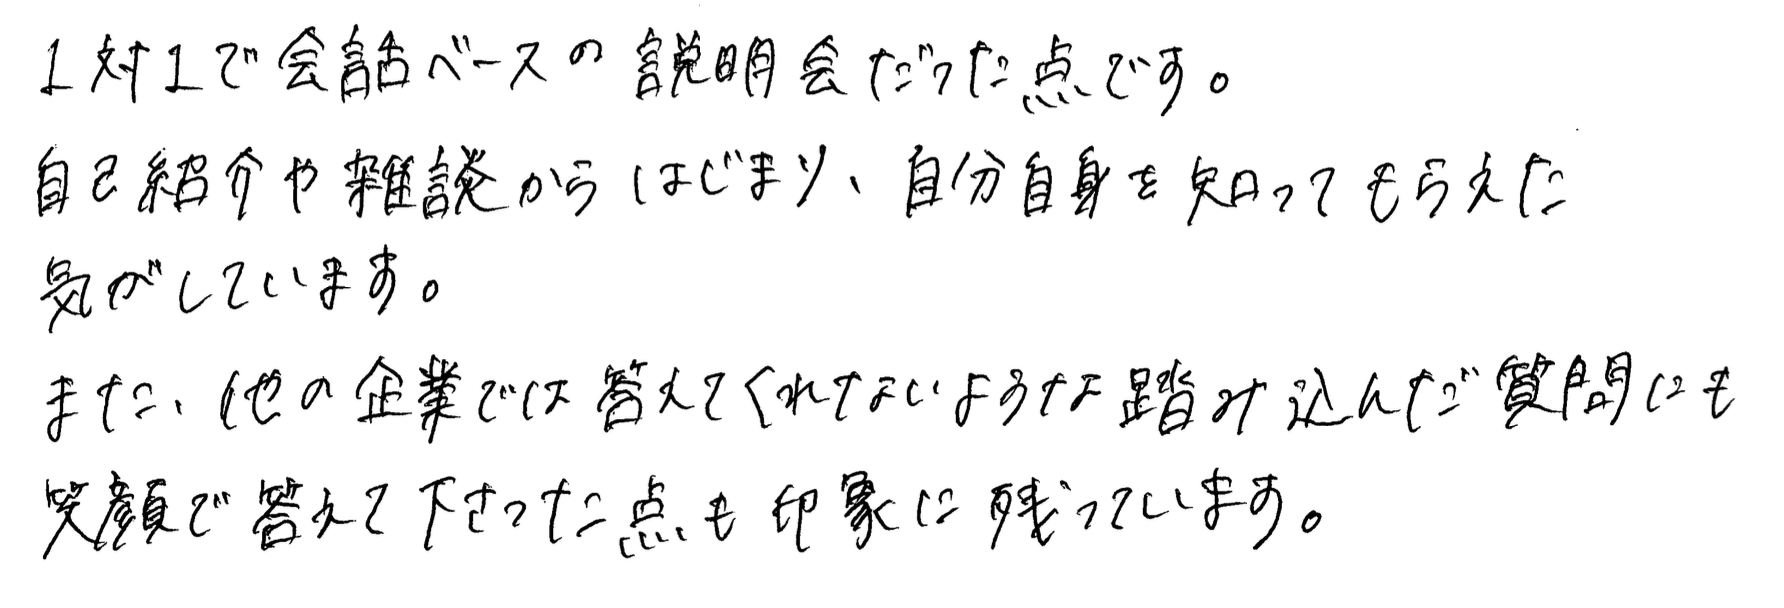 1対1で会話ベースの説明会だった点です。
自己紹介や雑談からはじまり、自分自身を知ってもらえた
気がしています。
また、他の企業では答えてくれないような踏み込んだ質問にも
笑顔で答えて下さった点も印象に残っています。